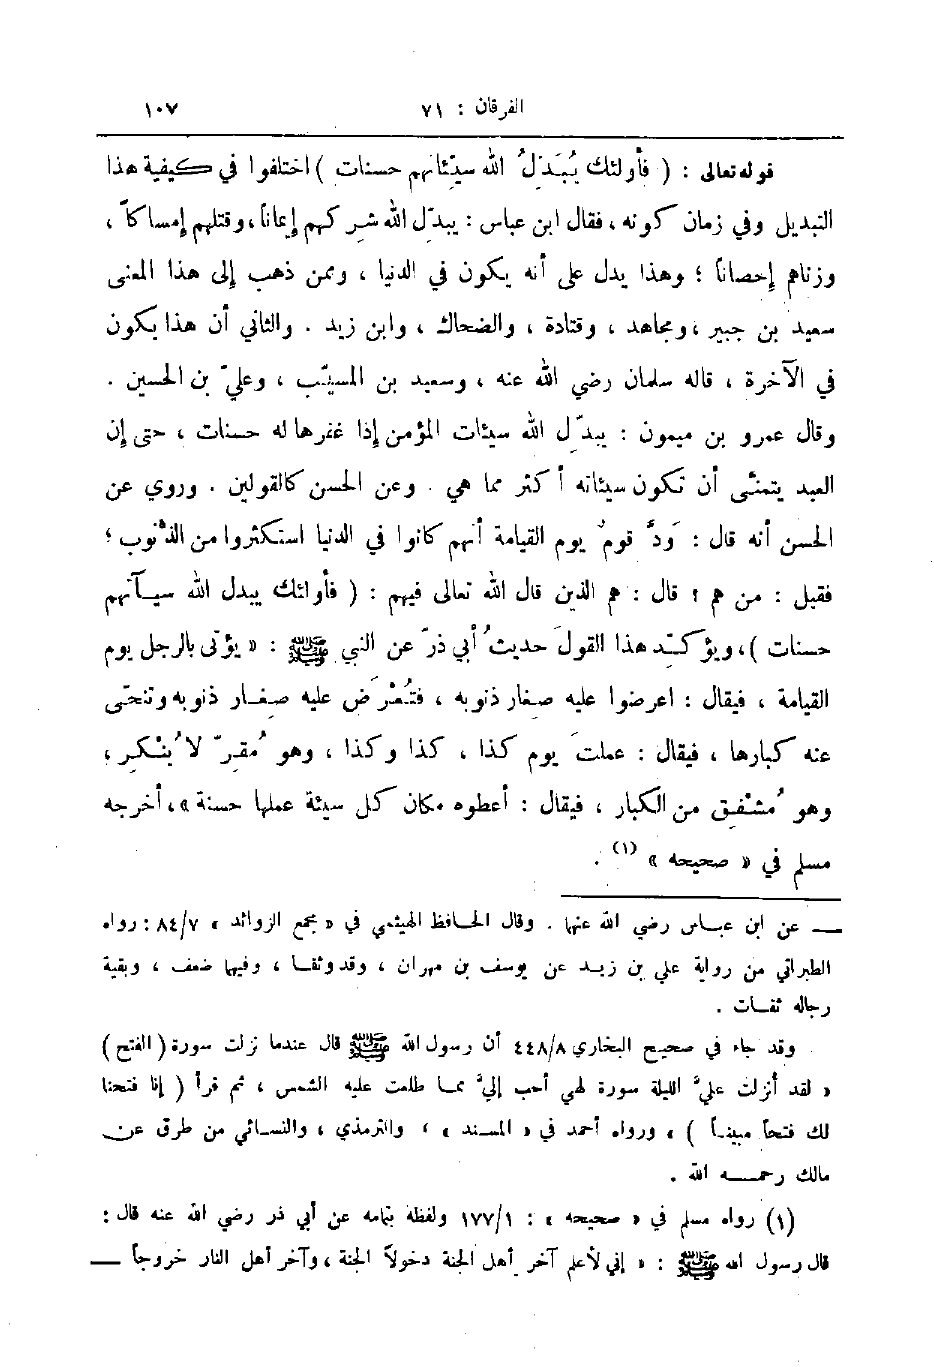 الفرقان : ٧١ ١٠٧
قوله تعالى : ( فأولئك يُبَدِّلُ الله سيِّئاتهم حسنات ) اختلفوا في كيفية هذا
التبديل وفي زمان كونه ، فقال ابن عباس : يبدِّل الله شركهم إيماناً، وقتلهم إمساكاً ،
وزناهم إحصاناً ؛ وهذا يدل على أنه يكون في الدنيا ، وممن ذهب إلى هذا المعنى
سعيد بن جبير ، ومجاهد ، وقتادة ، والضحاك ، وابن زيد . والثاني أن هذا يكون
في الآخرة ، قاله سلمان رضي الله عنه ، وسعيد بن المسيّب ، وعليّ بن الحسين .
وقال عمرو بن ميمون : يبدِّل الله سيئات المؤمن إذا غفرها له حسنات ، حتى إن
العبد يتمنَّى أن تكون سيئاته أكثر مما هي . وعن الحسن كالقولين . وروي عن
الحسن أنه قال : وَدَّ قومٌ يوم القيامة أنهم كانوا في الدنيا استكثروا من الذُّنوب ؛
فقيل : من هم ؟ قال : هم الذين قال الله تعالى فيهم : ( فأولئك يبدل الله سيآتهم
حسنات )، ويؤكِّد هذا القولَ حديثُ أبي ذرّ عن النبي ﷺ : « يؤتى بالرجل يوم
القيامة ، فيقال : اعرضوا عليه صغار ذنوبه ، فتُعْرَض عليه صغار ذنوبه وتنحّى
عنه كبارها ، فيقال : عملتَ يوم كذا ، كذا وكذا ، وهو مُقِرّ لا يُنْكِر ،
وهو مُشْفِق من الكبار ، فيقال : أعطوه مكان كل سيئة عملها حسنة »، أخرجه
مسلم في « صحيحه » (١) .
— عن ابن عباس رضي الله عنها . وقال الحافظ الهيثمي في « مجمع الزوائد » ٨٤/٧ : رواه
الطبراني من رواية علي بن زيد عن يوسف بن مهران ، وقد وثقا ، وفيها ضعف ، وبقية
رجاله ثقات .
وقد جاء في صحيح البخاري ٤٤٨/٨ أن رسول الله ﷺ قال عندما نزلت سورة ( الفتح )
« لقد أُنزلت عليَّ الليلة سورة لهي أحب إليَّ مما طلعت عليه الشمس ، ثم قرأ ( إنا فتحنا
لك فتحاً مبيناً ) » ورواه أحمد في « المسند » ، والترمذي ، والنسائي من طرق عن
مالك رحمه الله .
(١) رواه مسلم في « صحيحه » : ١٧٧/١ ولفظه بتمامه عن أبي ذر رضي الله عنه قال :
قال رسول الله ﷺ : « إني لأعلم آخر أهل الجنة دخولاً الجنة ، وآخر أهل النار خروجاً —